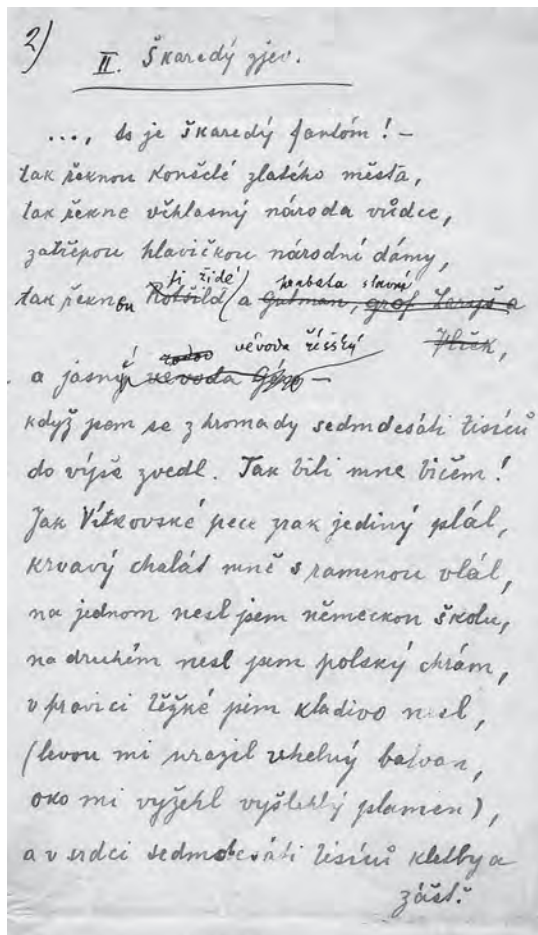 2)
II. Škaredý zjev.
..., to je škaredý fantóm! —
tak řeknou konšelé zlatého města,
tak řekne věhlasný národa vůdce,
zatřepou hlavičkou národní dámy,
ti židé hrabata slavní
tak řeknou Rotšild a Gutman, grof Laryš a
Vlček,
vévoda říšský
a jasný vévoda Géro —
když jsem se z hromady sedmdesáti tisíců
do výše zvedl. Tak bili mne bičem!
Jak Vítkovské pece zrak jediný plál,
krvavý chalát mně s ramenou vlál,
na jednom nesl jsem německou školu,
na druhém nesl jsem polský chrám,
v pravici těžké jsem kladivo nesl,
(levou mi urazil uhelný balvan,
oko mi vyžehl vyšlehlý plamen),
a v srdci sedmdesáti tisíců kletby a
zášť.